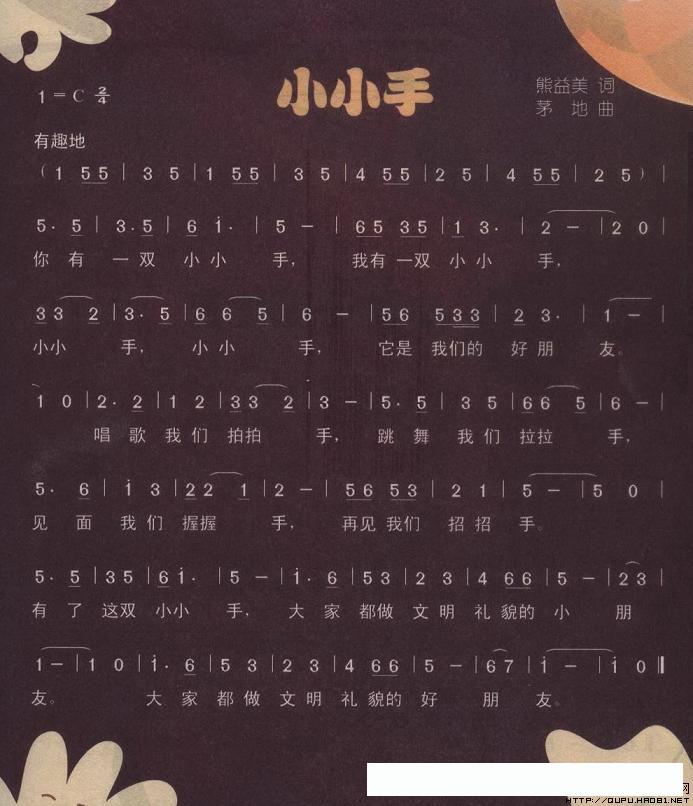 小小手
1=C 2/4
熊益美 词
茅 地 曲
有趣地
(1 55 | 3 5 | 1 55 | 3 5 | 4 55 | 2 5 | 4 55 | 2 5) |
5· 5 | 3·5 | 6 i· | 5 － | 65 35 | 1 3· | 2 － | 2 0 |
你 有 一 双 小 小 手， 我有 一双 小 小 手，
33 2 | 3· 5 | 6 6 5 | 6 － | 56 533 | 2 3· | 1 － |
小小 手， 小 小 手， 它是 我们的 好 朋 友。
1 0 | 2· 2 | 1 2 | 33 2 | 3 － | 5· 5 | 3 5 | 66 5 | 6 － |
唱 歌 我 们 拍拍 手， 跳 舞 我 们 拉拉 手，
5· 6 | i 3 | 22 1 | 2 － | 56 53 | 2 1 | 5 － | 5 0 |
见 面 我 们 握握 手， 再见 我们 招 招 手。
5· 5 | 35 | 6 i· | 5 － | i· 6 | 53 | 2 3 | 4 66 | 5 － | 23 |
有 了 这双 小小 手， 大 家 都做 文 明 礼 貌的 小 朋
1 － | 1 0 | i· 6 | 5 3 | 2 3 | 4 66 | 5 － | 67 | i － | i 0 ‖
友。 大 家 都 做 文 明 礼 貌的 好 朋 友。
网
HTTP://QUPU.HAO81.NET